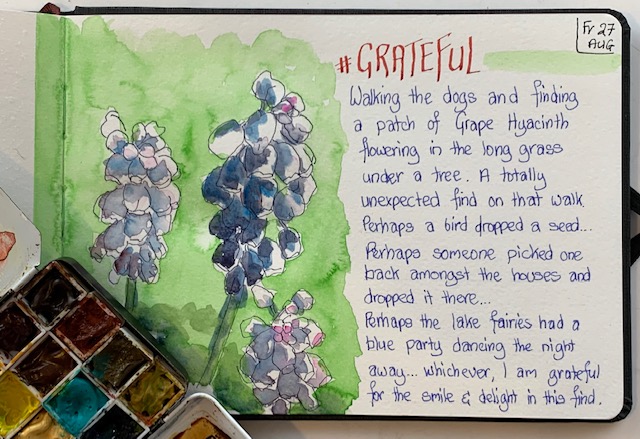 Fr 27
AUG
#GRATEFUL
Walking the dogs and finding
a patch of Grape Hyacinth
flowering in the long grass
under a tree. A totally
unexpected find on that walk.
Perhaps a bird dropped a seed...
Perhaps someone picked one
back amongst the houses and
dropped it there...
Perhaps the lake fairies had a
blue party dancing the night
away... whichever, I am grateful
for the smile & delight in this find.